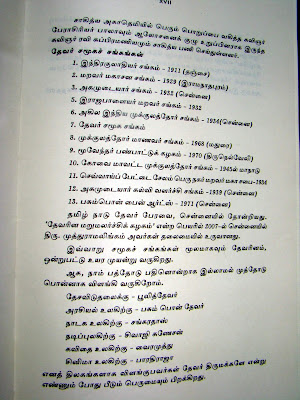 XVII
சாகித்ய அகாதெமியில் பெரும் பொறுப்பை வகித்த கவிஞர்
பேராசிரியர் பாலாவும் ஆலோசனைக் குழு உறுப்பினராக இருந்த
கவிஞர் ரவி சுப்பிரமணியமும் சாகித்ய பணி செய்துள்ளனர்.
தேவர் சமூகச் சங்கங்கள்
1. இந்திரகுலாதியர் சங்கம் - 1911 (தஞ்சை)
2. மறவர் மகாசன சங்கம் - 1923 (இராமநாதபுரம்)
3. அகமுடையார் சங்கம் - 1932 (சென்னை)
5. இராஜபாளையம் மறவர் சங்கம் - 1932
6. அகில இந்திய முக்குலத்தோர் சங்கம் - 1934(சென்னை)
7. தேவர் சமூக சங்கம்
8. முக்குலத்தோர் மாணவர் சங்கம் - 1968 (மதுரை)
9. மூவேந்தர் பண்பாட்டுக் கழகம் - 1970 (திருநெல்வேலி)
10. கோவை மாவட்ட முக்குலத்தோர் சங்கம் - 1945ல் மாநாடு
11. செவ்வாய்ப் பேட்டை சேலம் பெருநகர் மறவர் மகாசபை-1936
12. அகமுடையார் கல்வி வளர்ச்சி சங்கம் - 1939 (சென்னை)
13. பசும்பொன் பைன் ஆர்ட்ஸ் - 1971 (சென்னை)
தமிழ் நாடு தேவர் பேரவை, சென்னையில் தோன்றியது.
'தேவரின மறுமலர்ச்சிக் கழகம்' என்ற பெயரில் 2007-ல் சென்னையில்
திரு. முத்துராமலிங்கம் அவர்கள் தலைமையில் உருவானது.
இவ்வாறு சமூகச் சங்கங்கள் மூலமாகவும் தேவரினம்,
ஒன்றுபட்டு உயர முயன்று வருகிறது.
ஆக, நாம் பத்தோடு பதினொன்றாக இல்லாமல் முத்தோடு
பொன்னாக விளங்கி வருகிறோம்.
தேசவிடுதலைக்கு - பூலித்தேவர்
அரசியல் உலகிற்கு - பசும் பொன் தேவர்
நாடக உலகிற்கு - சங்கரதாஸ்
நடிப்புலகிற்கு - சிவாஜி கணேசன்
கவிதை உலகிற்கு - வைரமுத்து
சினிமா உலகிற்கு - பாரதிராஜா
எனத் திலகங்களாக விளங்குபவர்கள் தேவர் திருமக்களே என்று
எண்ணும் போது பீடும் பெருமையும் பிறக்கிறது.